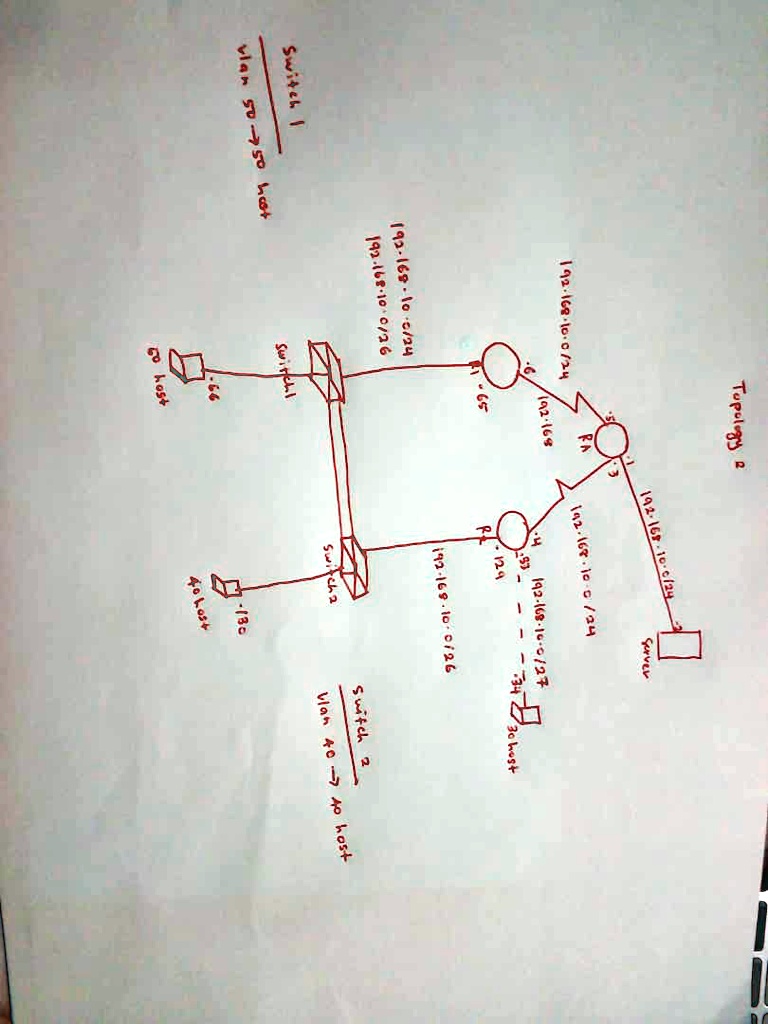 Topology 2
192.168.10.0/24
.2
Server
.1
.5
RA
.3
192.168.10.0/24
192.168
.6
R1
.65
192.168.10.0/24
.4
R2
.129
192.168.10.0/27
.34
30 host
192.168.10.0/24
192.168.10.0/26
192.168.10.0/26
Switch1
Switch2
.66
50 host
.130
40 host
Switch 1
Vlan 50 → 50 host
Switch 2
Vlan 40 → 40 host